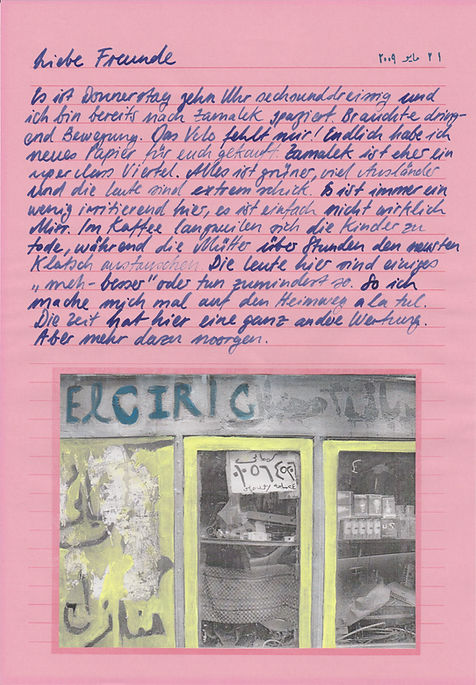 Liebe Freunde
٢١ مايو ٢٠٠٩
Es ist Donnerstag zehn Uhr sechsunddreissig und
ich bin bereits nach Zamalek spaziert. Brauchte dring-
end Bewegung. Das Velo fehlt mir! Endlich habe ich
neues Papier für euch gekauft. Zamalek ist eher ein
upper class Viertel. Alles ist grüner, viel Ausländer
und die Leute sind extrem schick. Es ist immer ein
wenig irritierend hier, es ist einfach nicht wirklich
Misr. Im Kaffee langweilen sich die Kinder zu
tode, während die Mütter über Stunden den neusten
Klatsch austauschen. Die Leute hier sind einiges
„meh-besser" oder tun zumindest so. So ich
mache mich mal auf den Heimweg ala tul.
Die Zeit hat hier eine ganz andre Wertung.
Aber mehr dazu moorgen.
ElCIRIC